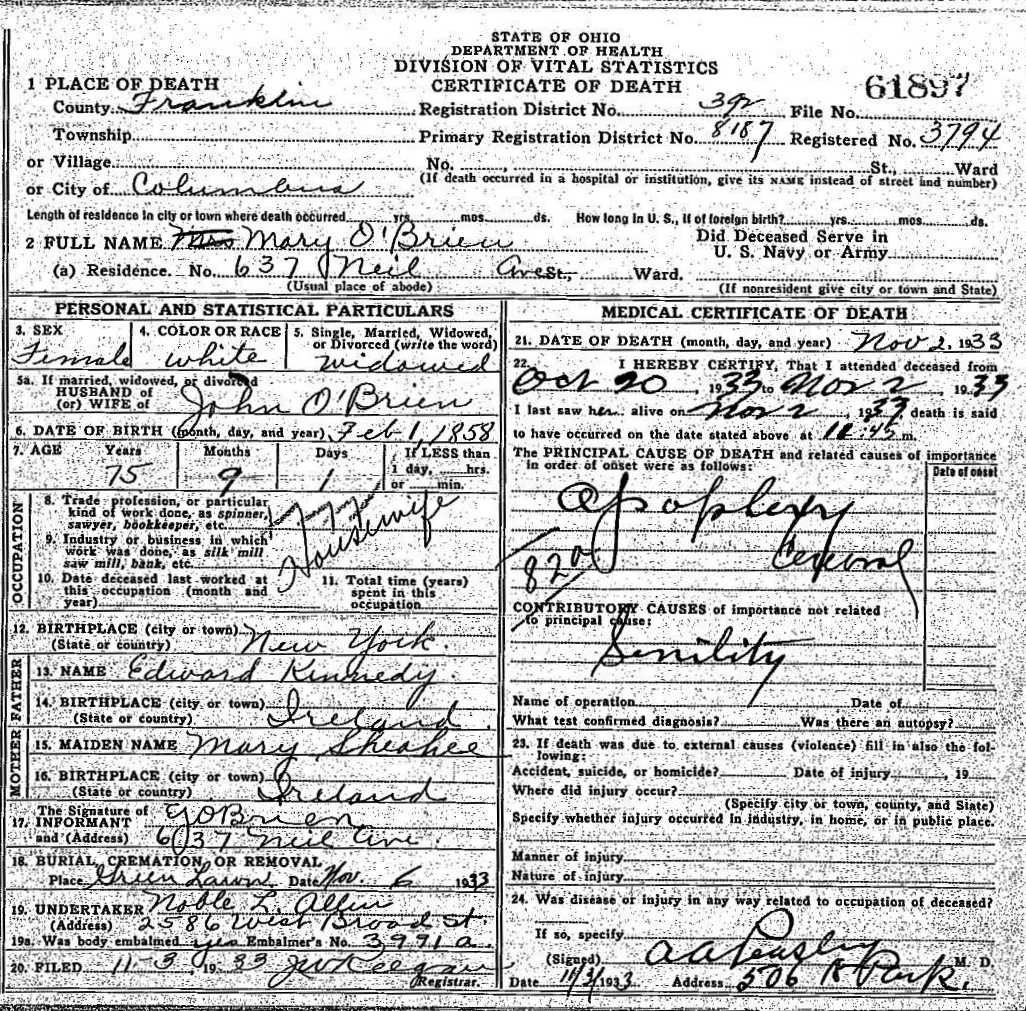 STATE OF OHIO
DEPARTMENT OF HEALTH
DIVISION OF VITAL STATISTICS
CERTIFICATE OF DEATH
61897
1 PLACE OF DEATH
County Franklin Registration District No. 392 File No.
Township Primary Registration District No. 8187 Registered No. 3794
or Village No. , St., Ward
or City of Columbus (If death occurred in a hospital or institution, give its NAME instead of street and number)
Length of residence in city or town where death occurred yrs. mos. ds. How long in U. S., if of foreign birth? yrs. mos. ds.
2 FULL NAME Mrs Mary O'Brien Did Deceased Serve in
U. S. Navy or Army
(a) Residence. No. 637 Neil Ave St., Ward.
(Usual place of abode) (If nonresident give city or town and State)
PERSONAL AND STATISTICAL PARTICULARS
3. SEX 4. COLOR OR RACE 5. Single, Married, Widowed,
or Divorced (write the word)
Female white widowed
5a. If married, widowed, or divorced
HUSBAND of
(or) WIFE of John O'Brien
6. DATE OF BIRTH (month, day, and year) Feb 1, 1858
7. AGE Years Months Days If LESS than
1 day, hrs.
75 9 1 or min.
OCCUPATION
8. Trade profession, or particular
kind of work done, as spinner,
sawyer, bookkeeper, etc.
Housewife
9. Industry or business in which
work was done, as silk mill
saw mill, bank, etc.
10. Date deceased last worked at
this occupation (month and
year)
11. Total time (years)
spent in this
occupation
12. BIRTHPLACE (city or town)
(State or country) New York.
FATHER
13. NAME Edward Kennedy.
14. BIRTHPLACE (city or town)
(State or country) Ireland
MOTHER
15. MAIDEN NAME Mary Sheahee
16. BIRTHPLACE (city or town)
(State or country) Ireland
The Signature of
17. INFORMANT O'Brien
and (Address) 637 Neil Ave.
18. BURIAL, CREMATION, OR REMOVAL
Place Green Lawn Date Nov. 6 1933
19. UNDERTAKER Noble L. Allen
(Address) 2586 West Broad St
19a. Was body embalmed yes Embalmer's No. 3991a
20. FILED 11-3, 1933 J W Keegan
Registrar.
MEDICAL CERTIFICATE OF DEATH
21. DATE OF DEATH (month, day, and year) Nov 2. 1933
22. I HEREBY CERTIFY, That I attended deceased from
Oct 20, 1933 to Nov 2, 1933
I last saw her alive on Nov 2, 1933 death is said
to have occurred on the date stated above at :45 m.
The PRINCIPAL CAUSE OF DEATH and related causes of importance
in order of onset were as follows:
Date of onset
Apoplexy
Cerebral
82a
CONTRIBUTORY CAUSES of importance not related
to principal cause:
Senility
Name of operation Date of
What test confirmed diagnosis? Was there an autopsy?
23. If death was due to external causes (violence) fill in also the fol-
lowing:
Accident, suicide, or homicide? Date of injury , 19
Where did injury occur?
(Specify city or town, county, and State)
Specify whether injury occurred in industry, in home, or in public place.
Manner of injury
Nature of injury
24. Was disease or injury in any way related to occupation of deceased?
If so, specify
(Signed) A A M. D.
Date 11/3/1933 Address 506 Park.